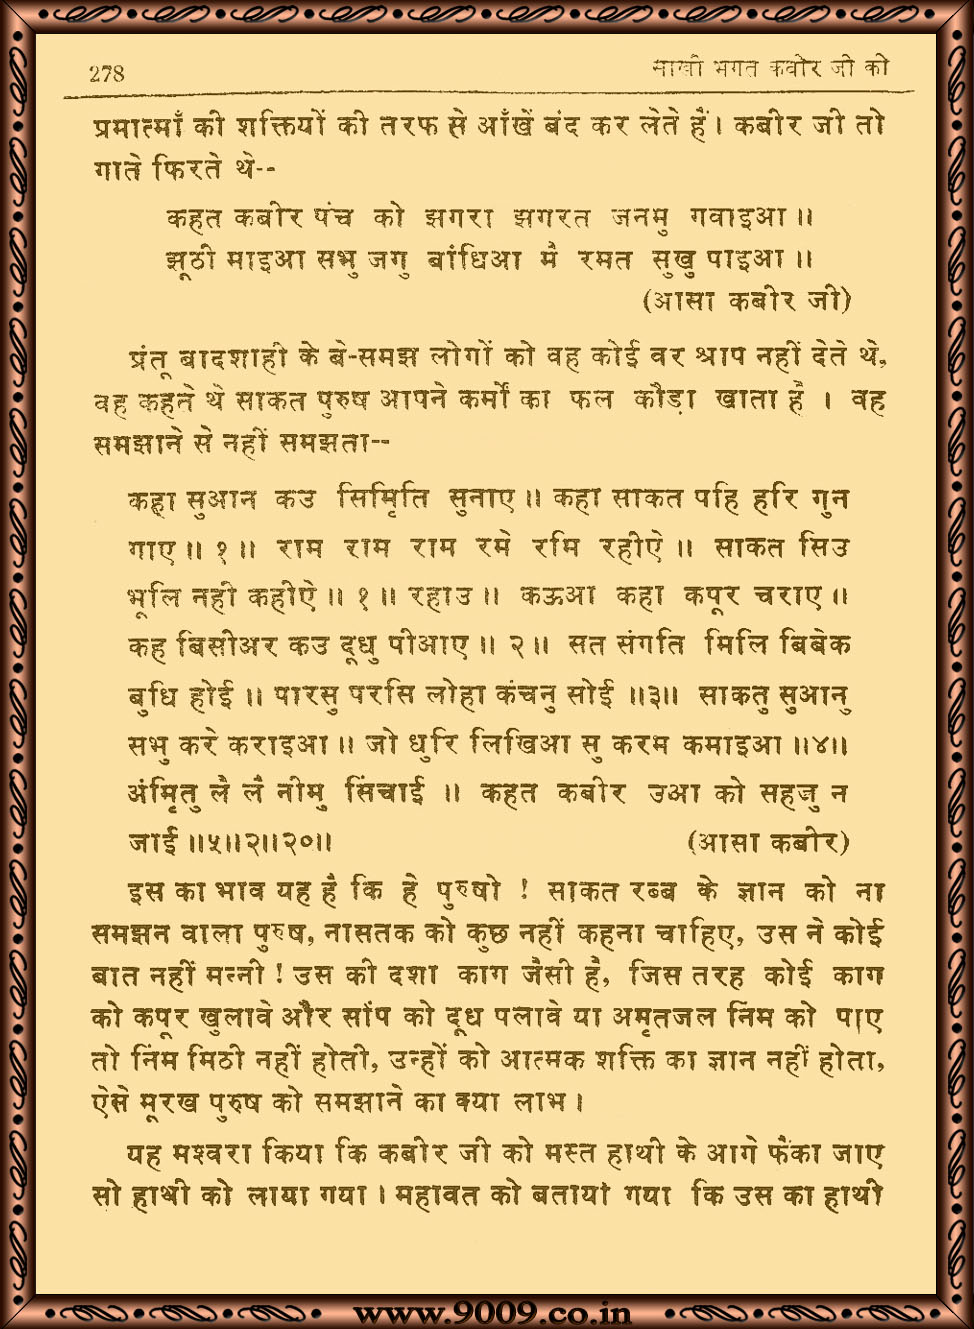 278
साखी भगत कबीर जी की
प्रमात्माँ की शक्तियों की तरफ से आँखें बंद कर लेते हैं। कबीर जी तो
गाते फिरते थे--
कहत कबीर पंच को झगरा झगरत जनमु गवाइआ ॥
झूठी माइआ सभु जगु बांधिआ मै रमत सुखु पाइआ ॥
(आसा कबीर जी)
प्रंतू बादशाही के बे-समझ लोगों को वह कोई वर श्राप नहीं देते थे,
वह कहते थे साकत पुरुष आपने कर्मों का फल कौड़ा खाता है । वह
समझाने से नहीं समझता--
कहा सुआन कउ सिमि्रति सुनाए ॥ कहा साकत पहि हरि गुन
गाए ॥ १ ॥ राम राम राम रमे रमि रहीऐ ॥ साकत सिउ
भूलि नही कहीऐ ॥ १ ॥ रहाउ ॥ कऊआ कहा कपूर चराए ॥
कह बिसीअर कउ दूधु पीआए ॥ २ ॥ सत संगति मिलि बिबेक
बुधि होई ॥ पारसु परसि लोहा कंचनु सोई ॥३॥ साकतु सुआनु
सभु करे कराइआ ॥ जो धुरि लिखिआ सु करम कमाइआ ॥४॥
अंमि्रतु लै लै नीमु सिंचाई ॥ कहत कबीर उआ को सहजु न
जाई ॥५॥२॥२०॥
(आसा कबीर)
इस का भाव यह है कि हे पुरुषो ! साकत रब्ब के ज्ञान को ना
समझन वाला पुरुष, नासतक को कुछ नहीं कहना चाहिए, उस ने कोई
बात नहीं मन्नी ! उस की दशा काग जैसी है, जिस तरह कोई काग
को कपूर खुलावे और सांप को दूध पलावे या अमृतजल निंम को पाए
तो निंम मिठी नहीं होती, उन्हों को आत्मक शक्ति का ज्ञान नहीं होता,
ऐसे मूरख पुरुष को समझाने का क्या लाभ ।
यह मश्वरा किया कि कबीर जी को मस्त हाथी के आगे फैंका जाए
सो हाथी को लाया गया । महावत को बताया गया कि उस का हाथी
www.9009.co.in